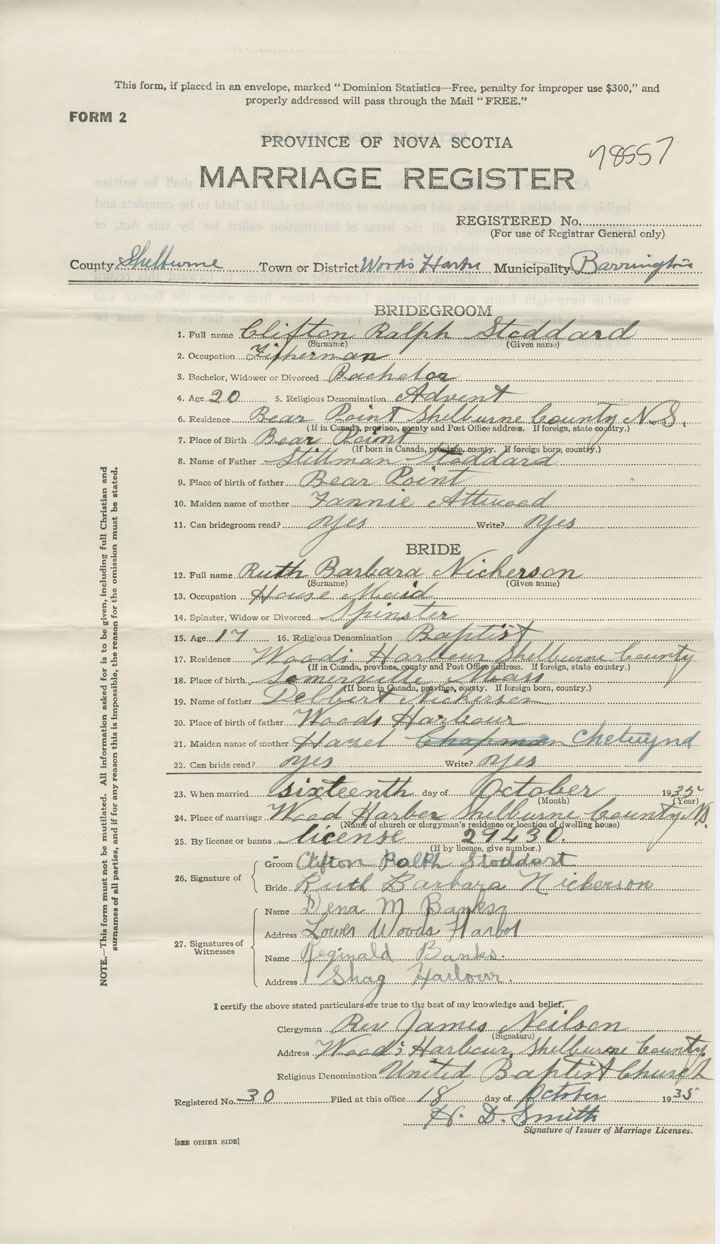 This form, if placed in an envelope, marked "Dominion Statistics—Free, penalty for improper use $300," and
properly addressed will pass through the Mail "FREE."
FORM 2
PROVINCE OF NOVA SCOTIA
78557
MARRIAGE REGISTER
REGISTERED No.
(For use of Registrar General only)
County Shelburne Town or District Woods Harbr Municipality Barrington
BRIDEGROOM
1. Full name Clifton Ralph Stoddard
(Surname) (Given name)
2. Occupation Fisherman
3. Bachelor, Widower or Divorced Bachelor
4. Age 20 5. Religious Denomination Advent
6. Residence Bear Point Shelburne County N.S.
(If in Canada, province, county and Post Office address. If foreign, state country.)
7. Place of Birth Bear Point
(If born in Canada, province, county. If foreign born, country.)
8. Name of Father Stillman Stoddard
9. Place of birth of father Bear Point
10. Maiden name of mother Fannie Attwood
11. Can bridegroom read? yes Write? yes
BRIDE
12. Full name Ruth Barbara Nickerson
(Surname) (Given name)
13. Occupation House Maid
14. Spinster, Widow or Divorced Spinster
15. Age 17 16. Religious Denomination Baptist
17. Residence Woods Harbour Shelburne County
(If in Canada, province, county and Post Office address. If foreign, state country.)
18. Place of birth Somerville Mass
(If born in Canada, province, county. If foreign born, country.)
19. Name of father Delbert Nickerson
20. Place of birth of father Woods Harbour
21. Maiden name of mother Hazel Chapman Chetwynd
22. Can bride read? yes Write? yes
23. When married sixteenth day of October 1935
(Month) (Year)
24. Place of marriage Wood Harber Shelburne County N.S.
(Name of church or clergyman's residence or location of dwelling house)
25. By license or banns license 29430.
(If by licence, give number.)
26. Signature of
Groom Clifton Ralph Stoddart
Bride Ruth Barbara Nickerson
27. Signatures of Witnesses
Name Dena M Banks
Address Lower Woods Harbor
Name Reginald Banks.
Address Shag Harbour.
I certify the above stated particulars are true to the best of my knowledge and belief.
Clergyman Rev James Neilson
(Signature)
Address Wood's Harbour, Shelburne County.
Religious Denomination United Baptist Church
Registered No. 30 Filed at this office 18 day of October 1935
H. D. Smith
Signature of Issuer of Marriage Licenses.
[SEE OTHER SIDE]
NOTE.—This form must not be mutilated. All information asked for is to be given, including full Christian and
surnames of all parties, and if for any reason this is impossible, the reason for the omission must be stated.